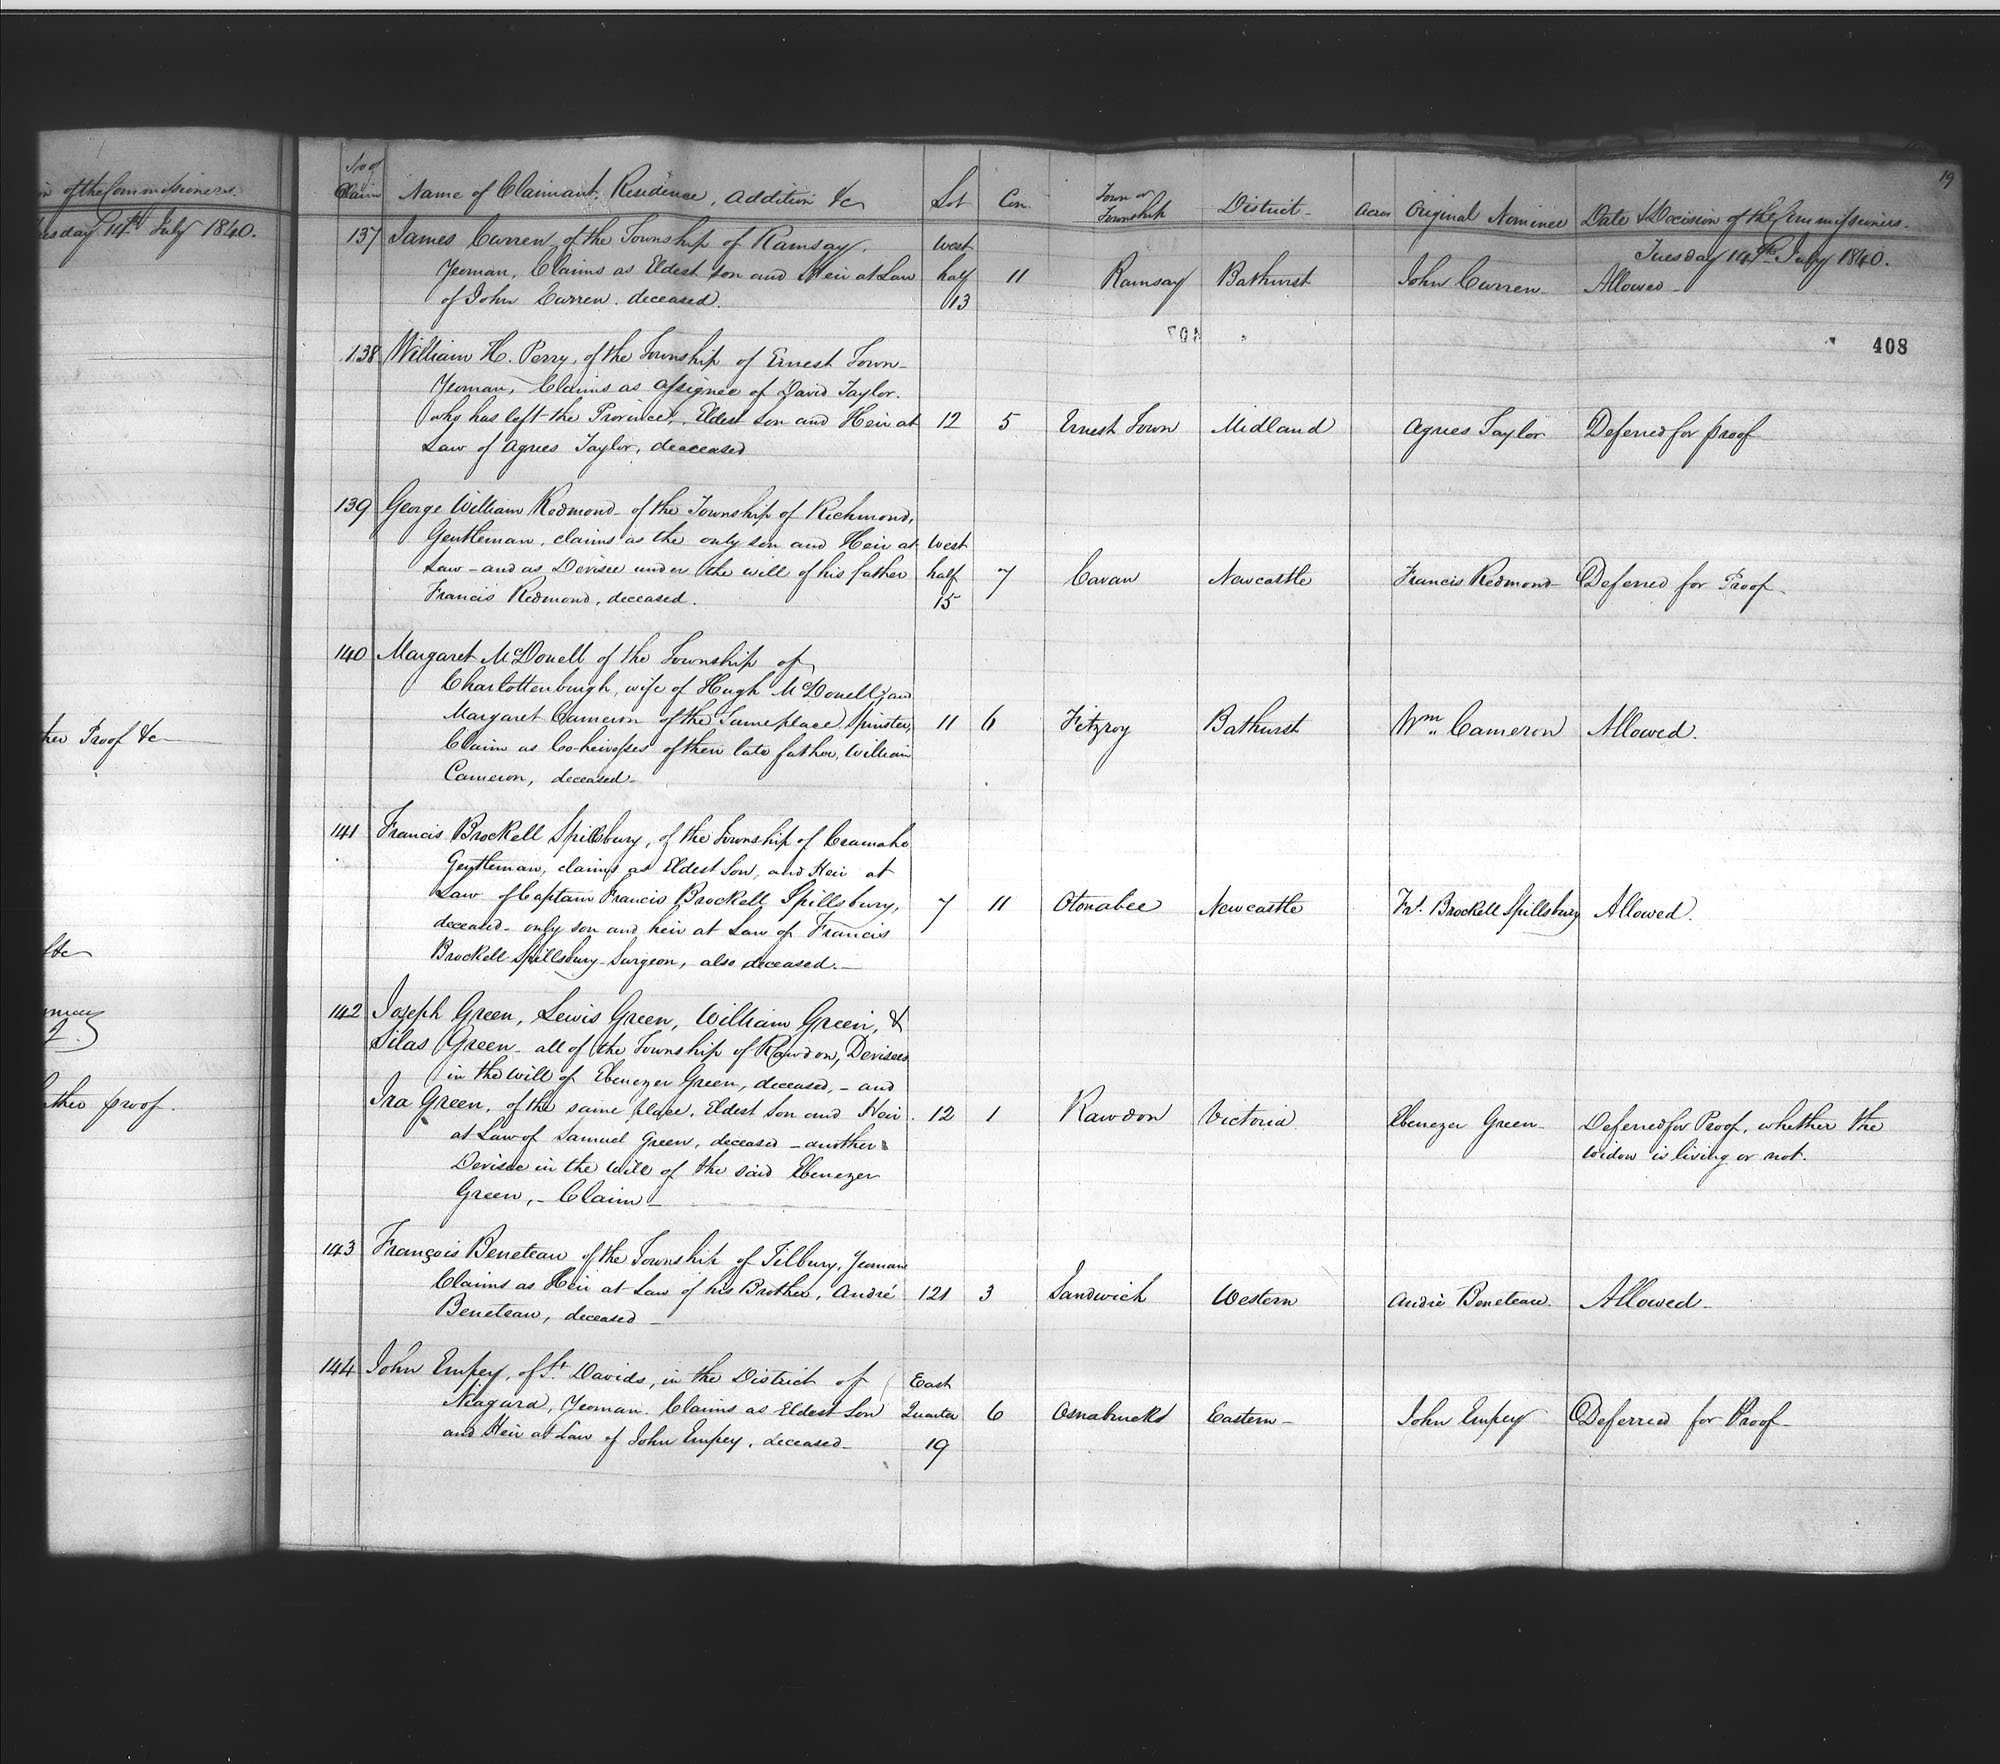 of the Commissioners.
Tuesday 14th July 1840.
ther Proof &c
&c
ther proof.
19
No of Claim
Name of Claimant, Residence, Addition &c
Lot
Con.
Town or Township
District
Acres
Original Nominee
Date & Decision of the Commissioners.
Tuesday 14th July 1840.
408
407
137 James Curren of the Township of Ramsay,
Yeoman, Claims as Eldest son and Heir at Law
of John Curren. deceased.
West half 13
11
Ramsay
Bathurst
John Curren
Allowed
138 William H. Perry, of the Township of Ernest Town
Yeoman, Claims as assignee of David Taylor.
who has left the Province, Eldest son and Heir at
Law of Agnes Taylor, deaceased
12
5
Ernest Town
Midland
Agnes Taylor
Deferred for proof
139 George William Redmond of the Township of Richmond,
Gentleman, claims as the only son and Heir at
Law – and as Devisee under the will of his father
Francis Redmond, deceased.
West half 15
7
Cavan
Newcastle
Francis Redmond
Deferred for Proof
140 Margaret McDonell of the Township of
Charlottenburgh, wife of Hugh McDonell, and
Margaret Cameron of the Same place, Spinster,
Claim as Co-heiresses of their late father, William
Cameron, deceased
11
6
Fitzroy
Bathurst
Wm Cameron
Allowed.
141 Francis Brockell Spillsbury, of the Township of Cramahe
Gentleman, claims as Eldest Son, and Heir at
Law of Captain Francis Brockell Spillsbury,
deceased – only son and heir at Law of Francis
Brockell Spillsbury Surgeon, also deceased. –
7
11
Otonabee
Newcastle
Frs. Brockell Spillsbury
Allowed.
142 Joseph Green, Lewis Green, William Green, &
Silas Green – all of the Township of Rawdon, Devisees
in the will of Ebenezer Green, deceased, – and
Ira Green, of the same place, Eldest Son and Heir
at Law of Samuel Green, deceased – another
Devisee in the Will of the said Ebenezer
Green, – Claim –
12
1
Rawdon
Victoria
Ebenezer Green
Deferred for Proof, whether the
widow is living or not.
143 François Beneteau of the Township of Tilbury, Yeoman
Claims as Heir at Law of his Brother, André
Beneteau, deceased –
121
3
Sandwich
Western
André Beneteau.
Allowed –
144 John Empey, of St. Davids, in the District of
Niagara, Yeoman. Claims as Eldest Son
and Heir at Law of John Empey, deceased –
East Quarter 19
6
Osnabruck
Eastern –
John Empey
Deferred for Proof –